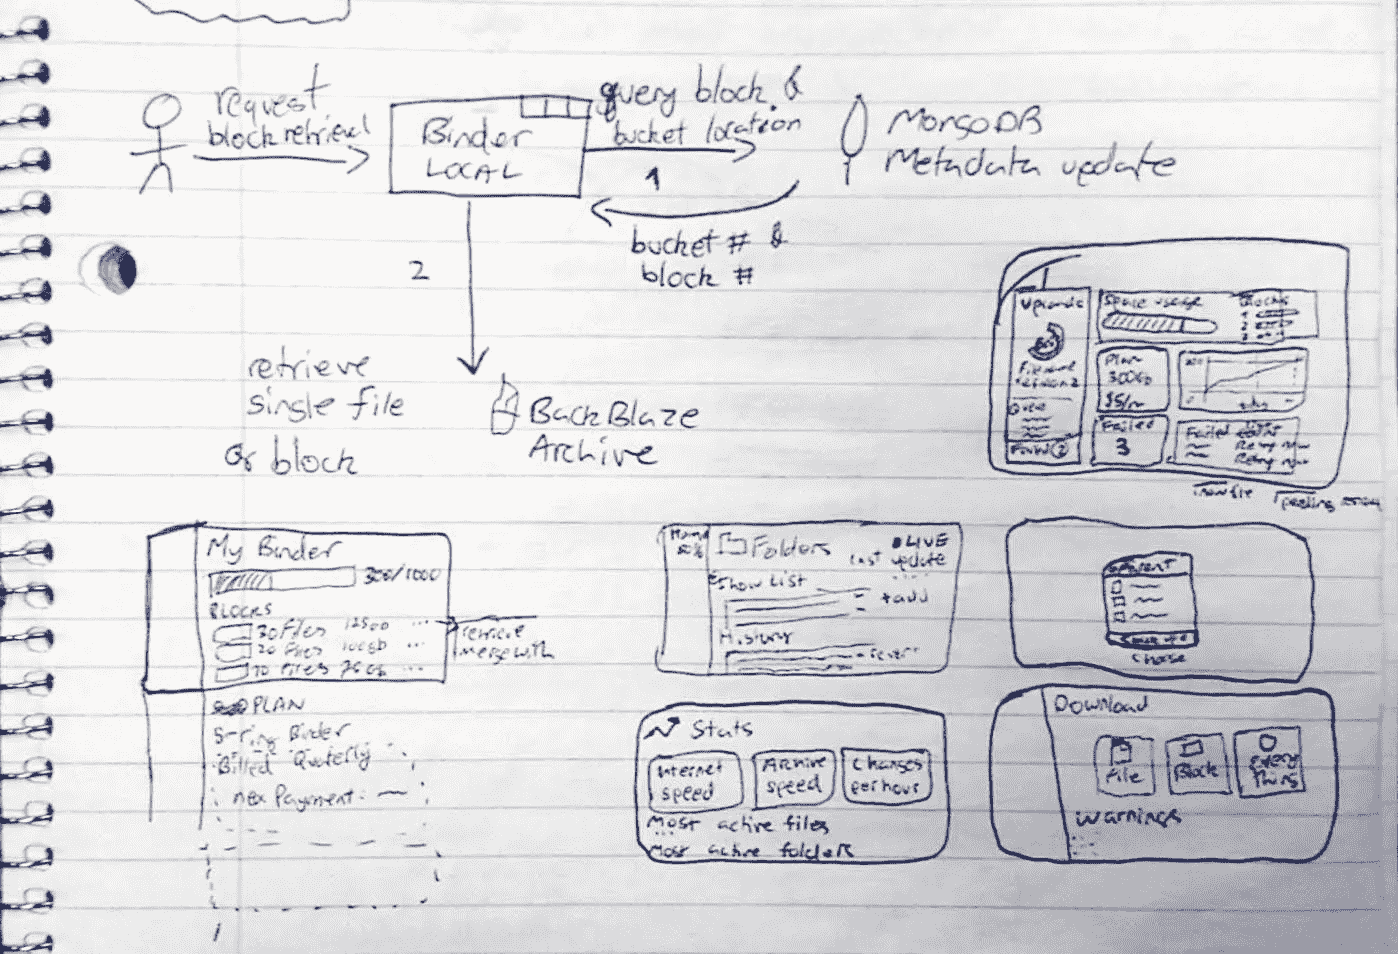 request
block retrieval
Binder
LOCAL
query block &
bucket location
1
MongoDB
Metadata update
bucket # &
block #
2
retrieve
single file
or block
BackBlaze
Archive
Uploads
Queue
Space usage
Blocks
Plan
300Gb
$5/m
Failed
3
Failed
Retry now
Retry now
My Binder
300/1000
BLOCKS
30 Files
20 Files 100Gb
70 Files
retrieve
merge with
PLAN
5-ring Binder
Billed Quoterly
nex Payment:
Home
Folders
LIVE
last update
Show List
+add
History
Choose
Stats
Internet
speed
Archive
speed
Changes
per hour
Most active files
Most active folders
Download
File
Block
every
thing
Warnings